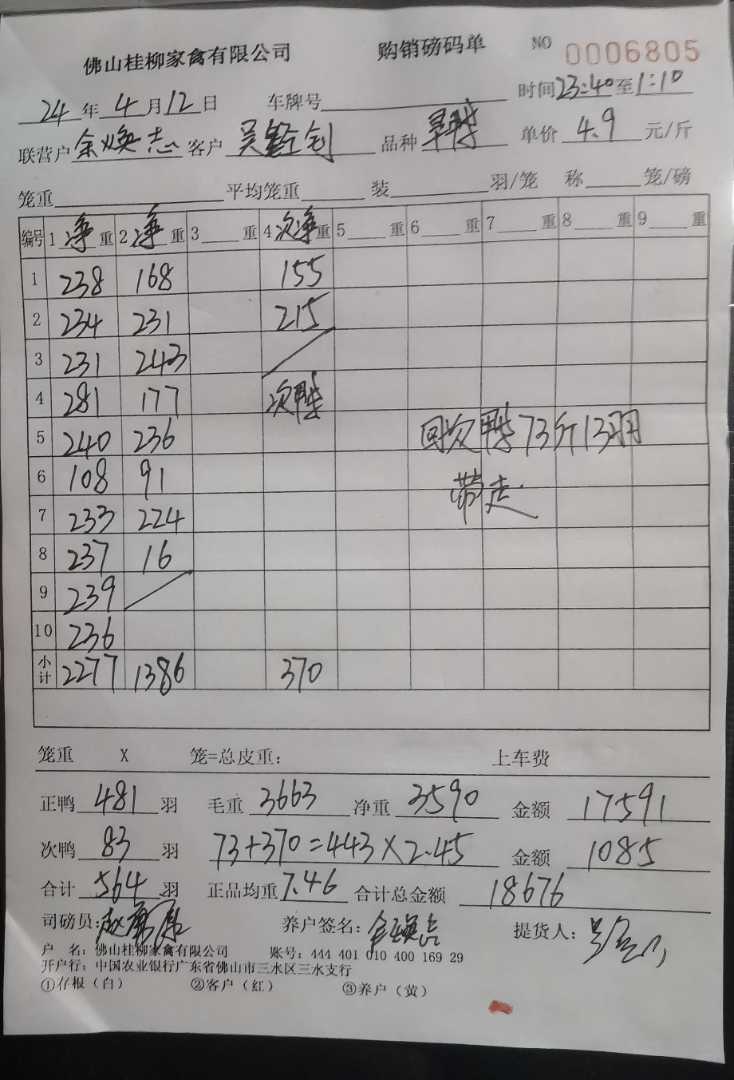 佛山桂柳家禽有限公司 购销磅码单 NO 0006805
24年4月12日 车牌号 时间23:40至1:10
联营户余焕志客户吴 品种 单价4.9元/斤
笼重 平均笼重 装 羽/笼 称 笼/磅
编号 1净重 2净重 3重 4次净重 5重 6重 7重 8重 9重
1 238 168 155
2 234 231 215
3 231 243
4 281 177 次鸭
5 240 236 回次鸭73斤13羽
6 108 91
带走
7 233 224
8 237 16
9 239
10 236
小计 2277 1386 370
笼重 X 笼=总皮重: 上车费
正鸭481羽 毛重3663 净重3590 金额17591
次鸭83羽 73+370=443×2.45 金额1085
合计564羽 正品均重7.46 合计总金额18676
司磅员: 养户签名: 提货人:
户 名: 佛山桂柳家禽有限公司 账号: 444 401 010 400 169 29
开户行: 中国农业银行广东省佛山市三水区三水支行
①存根(白) ②客户(红) ③养户(黄)